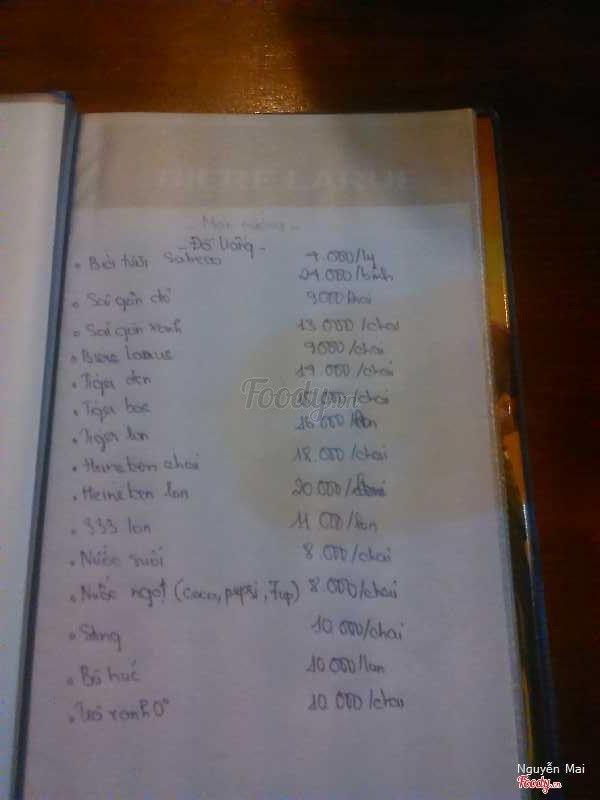 BIERE LARUE
- Món nướng -
- Đồ Uống -
• Bia tươi Sabeco 7.000/ly
21.000/bình
• Sài gòn đỏ 9000/chai
• Sài gòn xanh 13.000/chai
• Biere Larue 9000/chai
• Tiger đen 19.000/chai
• Tiger bạc 15.000/chai
• Tiger lon 16.000/lon
• Heineken chai 18.000/chai
• Heineken lon 20.000/
• 333 lon 11.000/lon
• Nước suối 8.000/chai
• Nước ngọt (coca, pepsi, 7up) 8.000/chai
• Sting 10.000/chai
• Bò húc 10.000/lon
• Trà xanh 0° 10.000/chai
Foody.vn
Nguyễn Mai
Foody.vn